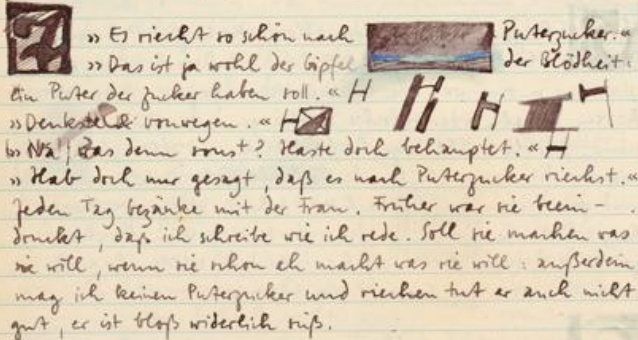 7 »Es riecht so schön nach Puterzucker.«
»Das ist ja wohl der Gipfel der Blödheit:
ein Puter der Zucker haben soll.«
»Denkste vonwegen.«
»Na, was denn sonst? Haste doch behauptet.«
»Hab doch nur gesagt, daß es nach Puterzucker riechst.«
Jeden Tag bezänke mit der Frau. Früher war sie beein-
druckt, daß ich schreibe wie ich rede. Soll sie machen was
sie will, wenn sie schon eh macht was sie will: außerdem
mag ich keinen Puterzucker und riechen tut er auch nicht
gut, er ist bloß widerlich süß.